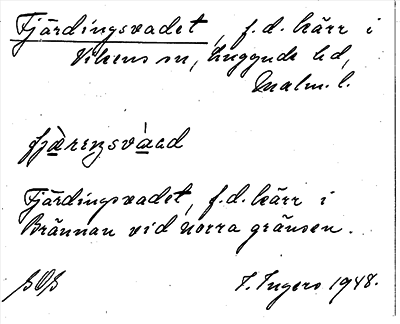 Fjärdingsvadet, f.d. kärr i
Vikens sn, Luggude hd,
Malm. l.
fjä̀reŋsvàad
Fjärdingsvadet, f.d. kärr i
Brännan vid norra gränsen.
I. Ingers 1948.